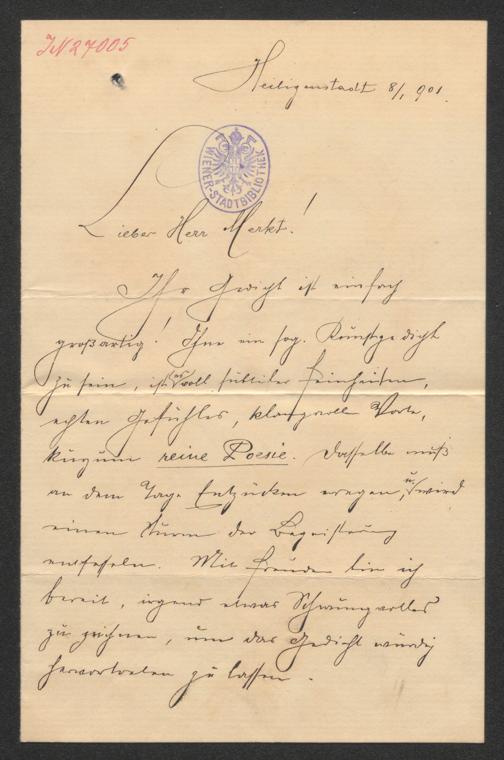 IN 27005
Heiligenstadt 8/1 901.
WIENER-STADTBIBLIOTHEK
Lieber Herr Merkt!
Ihr Gedicht ist einfach
großartig! Ohne ein sog. Kunstgedicht
zu sein, ist es voll subtiler Feinheiten,
echten Gefühles, klangvoller Worte,
kurzum reine Poesie. Dasselbe muß
an dem Tage Entzücken erregen, u. wird
einen Sturm der Begeisterung
entfesseln. Mit Freuden bin ich
bereit, irgend etwas Schwungvolles
zu zeichnen, um das Gedicht würdig
hervortreten zu lassen.